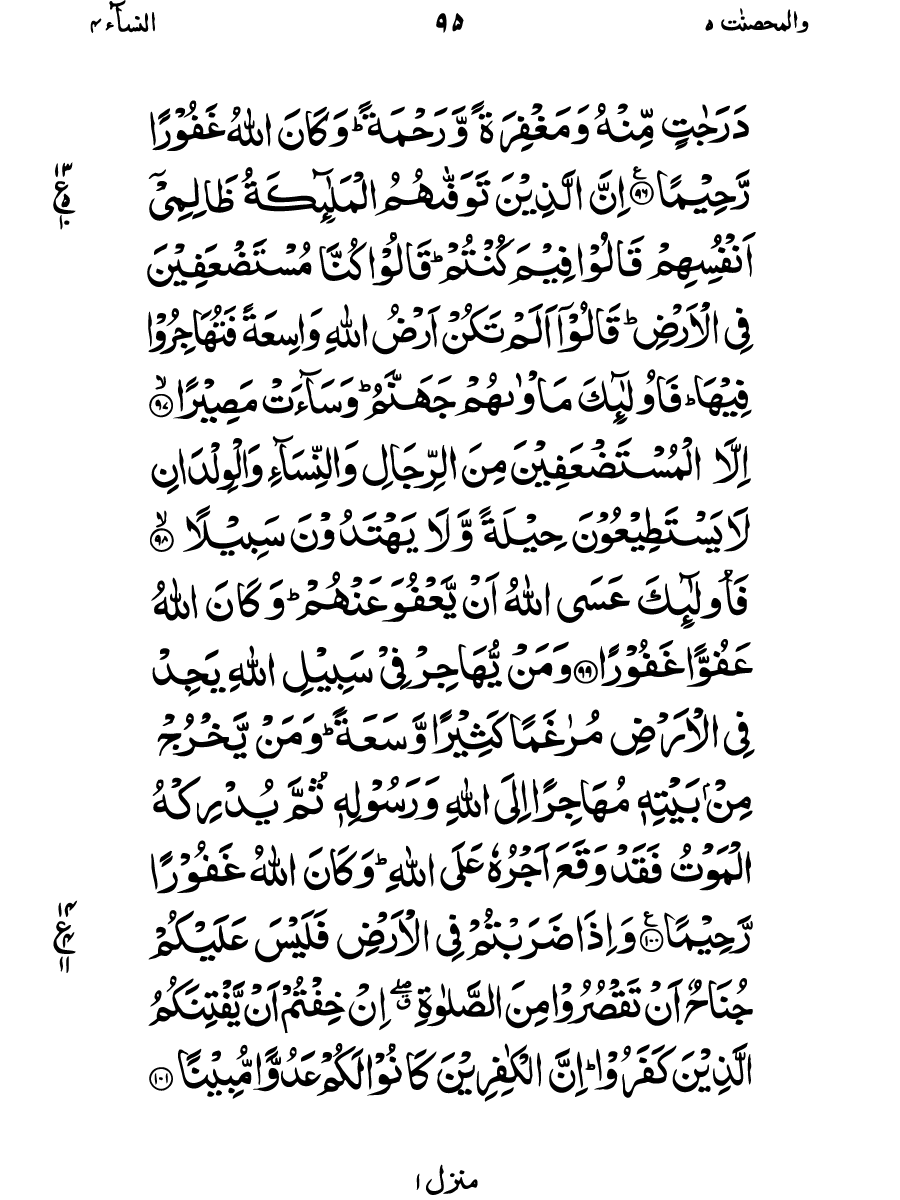 والمحصنت ٥ ٩٥ النسآء ٤
دَرَجٰتٍ مِّنْهُ وَمَغْفِرَةً وَّرَحْمَةً ؕ وَكَانَ اللّٰهُ غَفُوْرًا
رَّحِيْمًا ۟ع ﴿۹۶﴾ اِنَّ الَّذِيْنَ تَوَفّٰٮهُمُ الْمَلٰٓٮِٕكَةُ ظَالِمِيْۤ
اَنْفُسِهِمْ قَالُوْا فِيْمَ كُنْتُمْ ؕ قَالُوْا كُنَّا مُسْتَضْعَفِيْنَ
فِى الْاَرْضِ ؕ قَالُوْۤا اَلَمْ تَكُنْ اَرْضُ اللّٰهِ وَاسِعَةً فَتُهَاجِرُوْا
فِيْهَا ؕ فَاُولٰٓٮِٕكَ مَاْوٰٮهُمْ جَهَنَّمُ ؕ وَسَآءَتْ مَصِيْرًا ۙ ﴿۹۷﴾
اِلَّا الْمُسْتَضْعَفِيْنَ مِنَ الرِّجَالِ وَالنِّسَآءِ وَالْوِلْدَانِ
لَا يَسْتَطِيْعُوْنَ حِيْلَةً وَّلَا يَهْتَدُوْنَ سَبِيْلًا ۙ ﴿۹۸﴾
فَاُولٰٓٮِٕكَ عَسَى اللّٰهُ اَنْ يَّعْفُوَ عَنْهُمْ ؕ وَكَانَ اللّٰهُ
عَفُوًّا غَفُوْرًا ﴿۹۹﴾ وَمَنْ يُّهَاجِرْ فِىْ سَبِيْلِ اللّٰهِ يَجِدْ
فِى الْاَرْضِ مُرٰغَمًا كَثِيْرًا وَّسَعَةً ؕ وَمَنْ يَّخْرُجْ
مِنْۢ بَيْتِهٖ مُهَاجِرًا اِلَى اللّٰهِ وَرَسُوْلِهٖ ثُمَّ يُدْرِكْهُ
الْمَوْتُ فَقَدْ وَقَعَ اَجْرُهٗ عَلَى اللّٰهِ ؕ وَكَانَ اللّٰهُ غَفُوْرًا
رَّحِيْمًا ع ﴿۱۰۰﴾ وَاِذَا ضَرَبْتُمْ فِى الْاَرْضِ فَلَيْسَ عَلَيْكُمْ
جُنَاحٌ اَنْ تَقْصُرُوْا مِنَ الصَّلٰوةِ ۖق اِنْ خِفْتُمْ اَنْ يَّفْتِنَكُمُ
الَّذِيْنَ كَفَرُوْا ؕ اِنَّ الْكٰفِرِيْنَ كَانُوْا لَكُمْ عَدُوًّا مُّبِيْنًا ﴿۱۰۱﴾
۱۳
ع
۱۰
۱۴
ع
۴
۱۱
منزل ۱